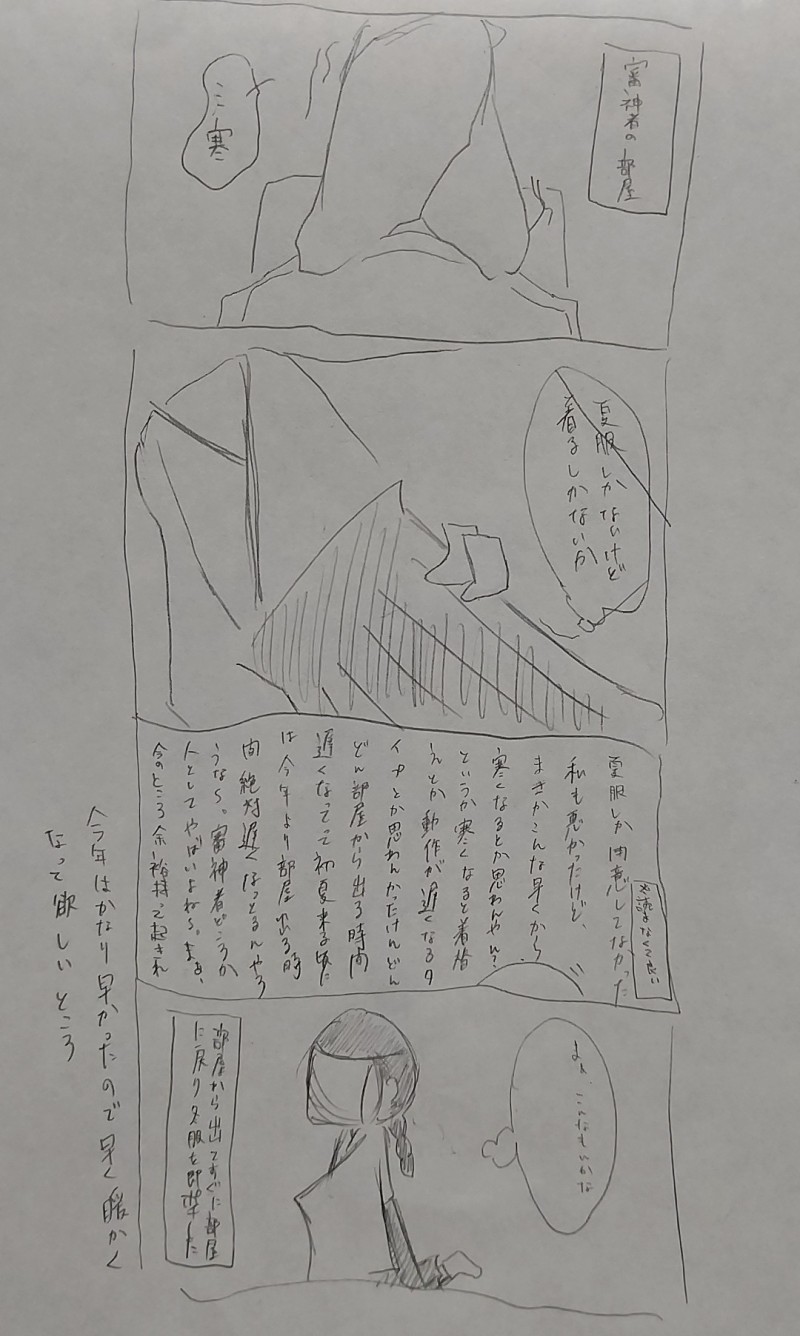 審神者の部屋
ミミ寒
夏服しかないけど
着るしかないか
※読まなくて良い
夏服しか用意してなかった
私も悪かったけど、
まさかこんな早くから
寒くなるとか思わんやん?
というか寒くなると着替
えとか動作が遅くなるタ
イプとか思わんかったけんどん
どん部屋から出る時間
遅くなってって初夏来る頃に
は今年より部屋出る時
間絶対遅くなっとるんやろ
うな〜。審神者どころか
人としてやばいよね〜。まぁ、
今のところ余裕持って起きれ
まぁ、こんなもんかな
部屋から出てすぐに部屋
に戻り冬服を即準した
今年はかなり早かったので早く暖かく
なって欲しいところ